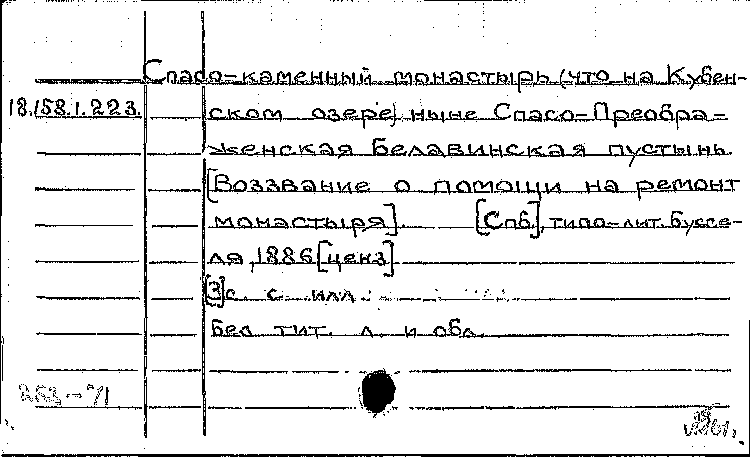 Спасо-каменный монастырь (что на Кубен-
18.158.1.223. ском озере) ныне Спасо-Преобра-
женская Белавинская пустынь.
[Воззвание о помощи на ремонт
монастыря]. [Спб], типо-лит. Буссе-
ля, 1886 [ценз]
[3]с. с илл.
без тит. л. и обл.